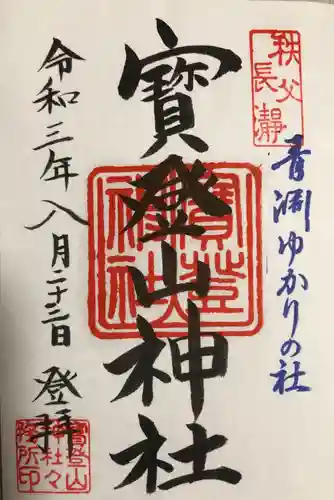 秩父
長瀞
青淵ゆかりの社
寳登山神社
寳登
山神社
令和三年八月二十三日 登拝
寳登山
神社々
務所印